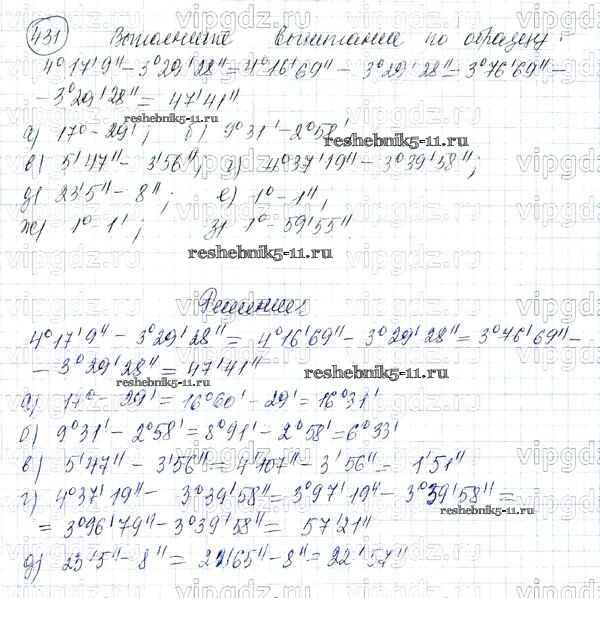 431 Выполните вычитание по образцу:
4°17'9" - 3°29'28" = 4°16'69" - 3°29'28" = 3°76'69" -
- 3°29'28" = 47'41"
а) 17° - 29'; б) 9°31' - 2°58'
в) 5'47" - 3'56"; г) 4°37'19" - 3°39'58";
д) 23'5" - 8"; е) 1° - 1";
ж) 1° - 1'; з) 1° - 59'55"
Решение:
4°17'9" - 3°29'28" = 4°16'69" - 3°29'28" = 3°76'69" -
- 3°29'28" = 47'41"
а) 17° - 29' = 16°60' - 29' = 16°31'
б) 9°31' - 2°58' = 8°91' - 2°58' = 6°33'
в) 5'47" - 3'56" = 4'107" - 3'56" = 1'51"
г) 4°37'19" - 3°39'58" = 3°97'19" - 3°39'58" =
= 3°96'79" - 3°39'58" = 57'21"
д) 23'5" - 8" = 22'65" - 8" = 22'57"
reshebnik5-11.ru
reshebnik5-11.ru
reshebnik5-11.ru
reshebnik5-11.ru
reshebnik5-11.ru
reshebnik5-11.ru
vipgdz.ru